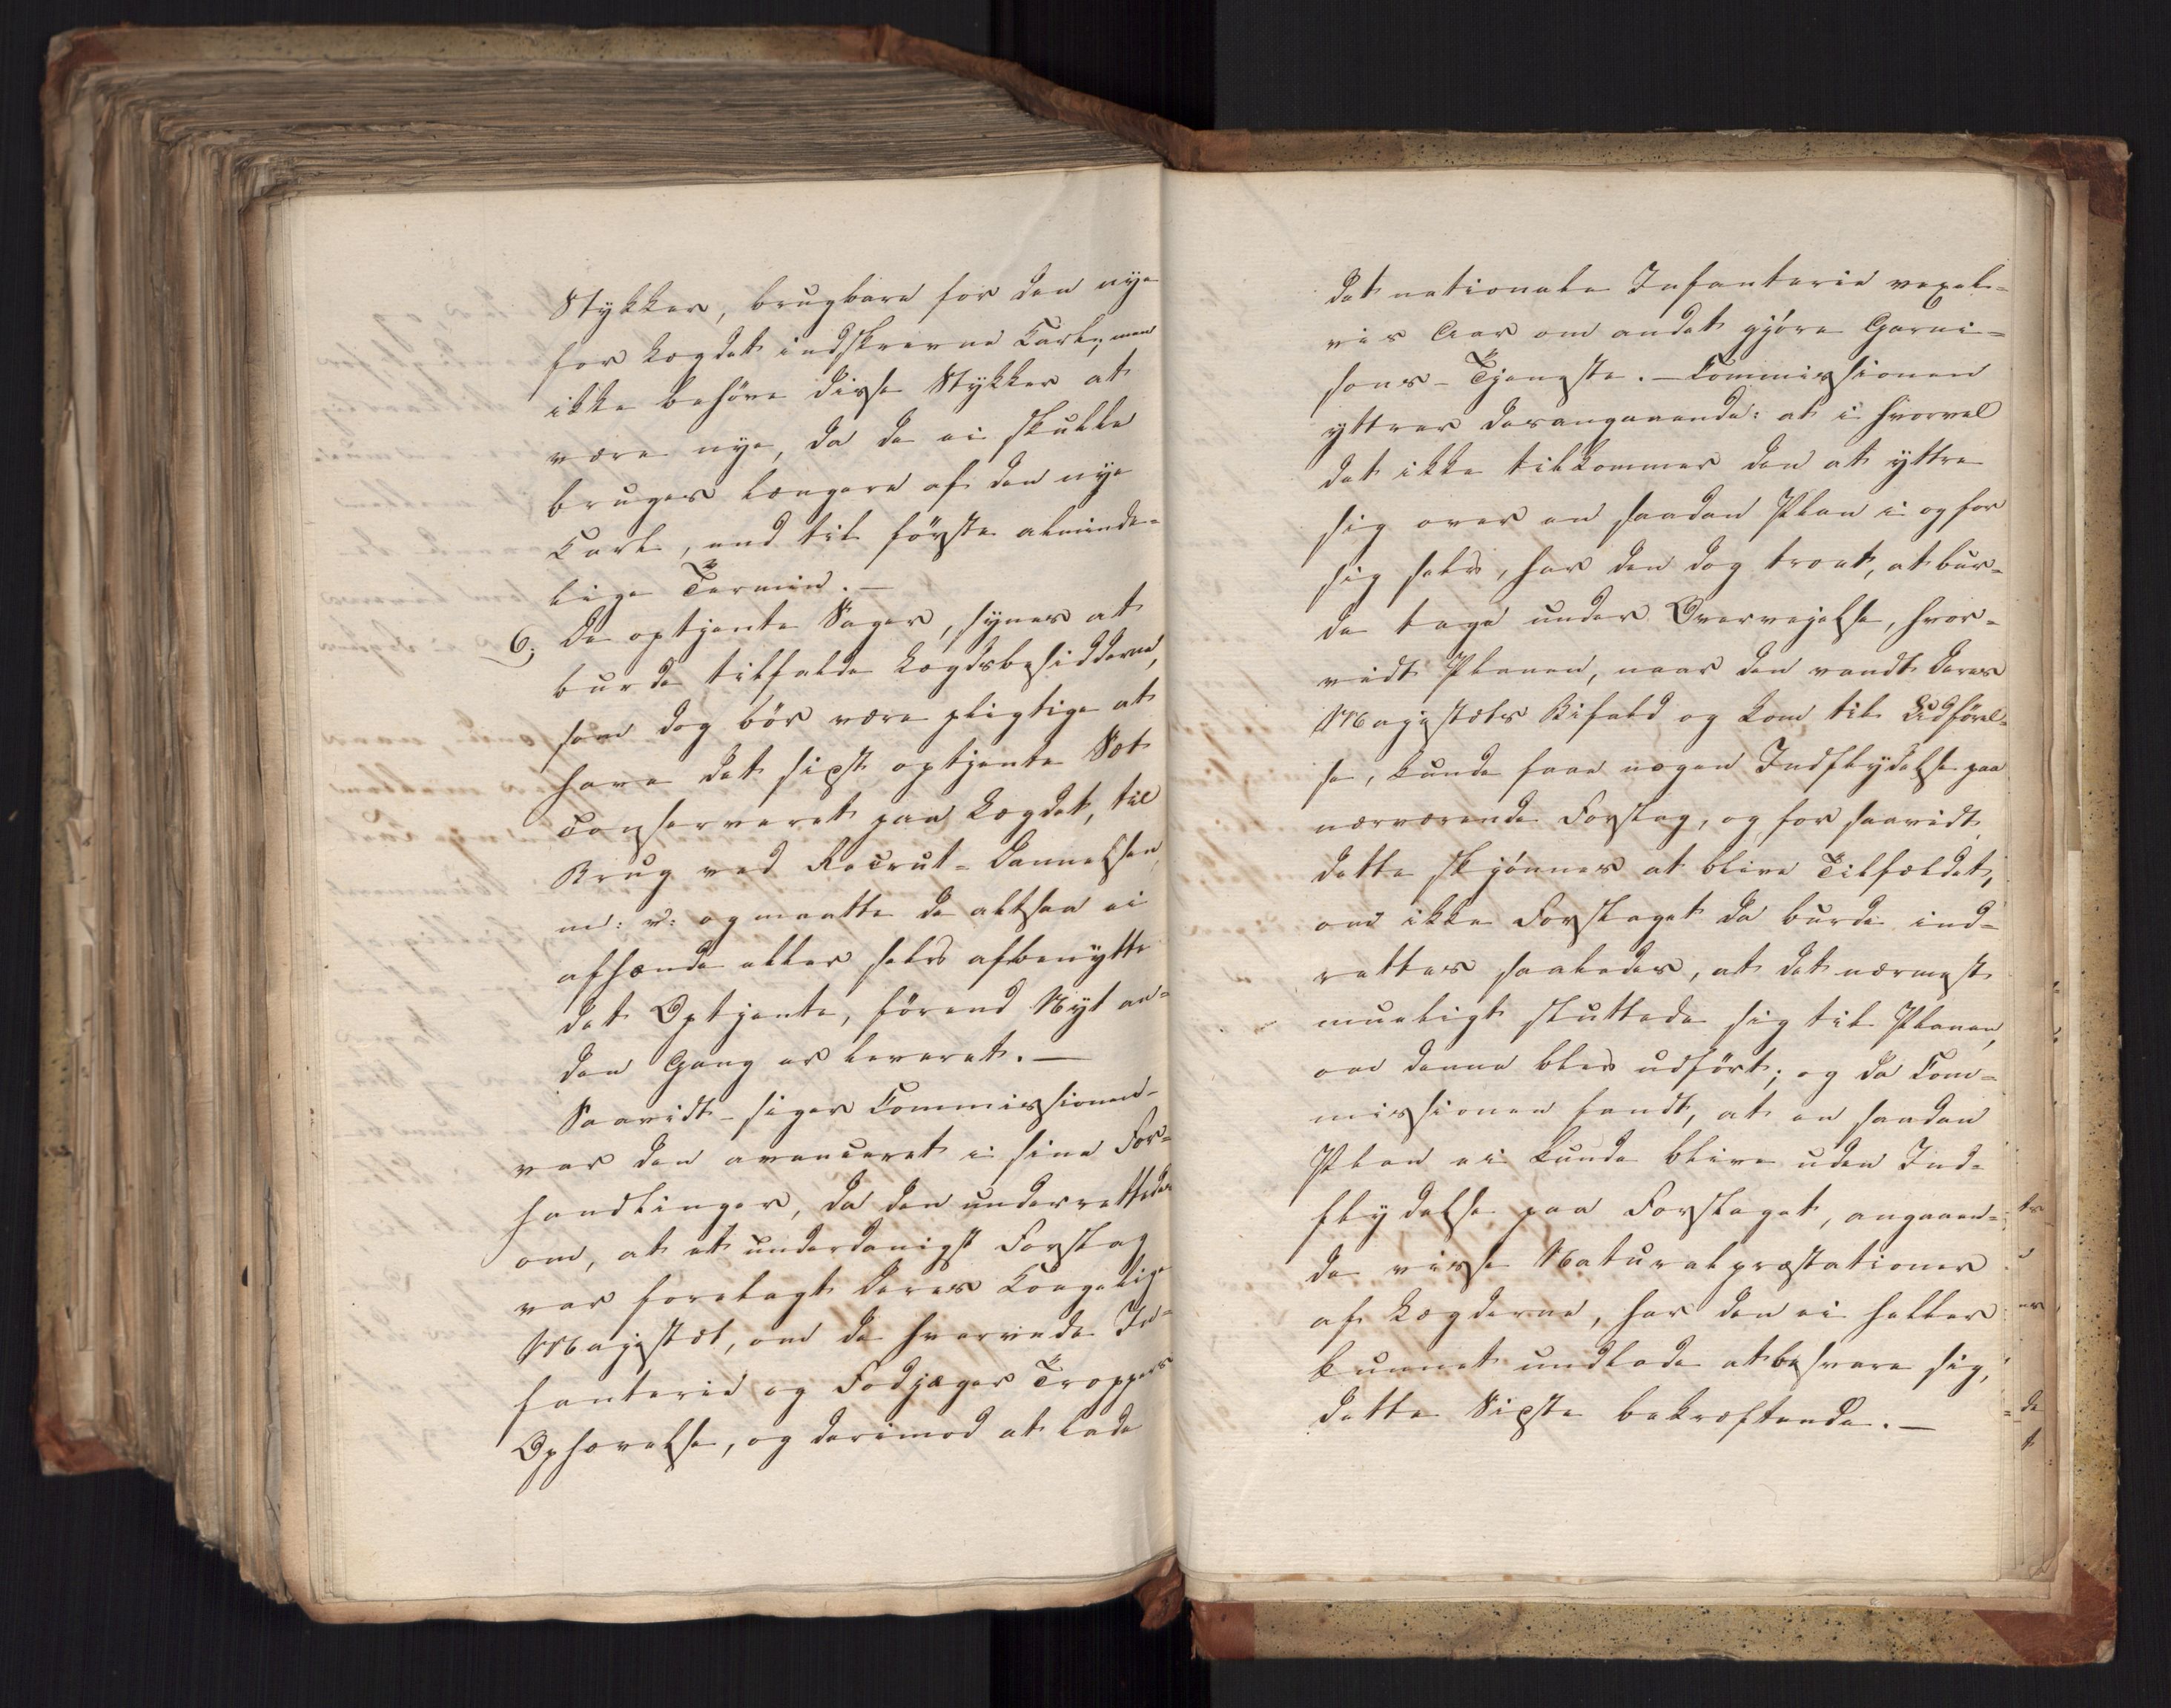 Stykker, brugbare for den nye
for Lægdet indskrevne Karl, men
ikke behöve disse Stykker at
være nye, da de ei skulle
bruges længere af den nye
Karl, end til förste alminde-
lige Termin. —
6, De optjente Sager, synes at
burde tilfalde Lægdsbesidderne,
som dog bör være pligtige at
have det sidst optjente Sæt
conserveret paa Lægdet, til
Brug ved Recrut-Dannelsen
m: v: og maatte de altsaa ei
afhænde eller selv afbenytte
det Optjente, förend Nyt an-
den Gang er leveret. —
Saavidt - siger Commissionen -
var den avanceret i sine For-
handlinger, da den underrettedes
om, at et underdanigst Forslag
var forelagt Deres Kongelige
Majestæt, om de hvervede In-
fanterie og Fodjæger Troppers
Ophævelse, og derimod at lade
det nationale Infanterie vexel-
vis Aar om andet gjöre Garni-
sons-Tjeneste. — Commissionen
yttrer desangaaende: at i hvorvel
det ikke tilkommer den at yttre
sig over en saadan Plan i og for
sig selv, har den dog troet, at bur-
de tage under Overvejelse, hvor-
vidt Planen, naar den vandt Deres
Majestæts Bifald og kom til Udförel-
se, kunde faae nogen Indflydelse paa
nærværende Forslag, og for saavidt
dette skjönnes at blive Tilfældet,
om ikke Forslaget da burde ind-
rettes saaledes, at det nærmest
mueligt sluttede sig til Planen,
om denne blev udfört; og da Com-
missionen fandt, at en saadan
Plan ei kunde blive uden Ind-
flydelse paa Forslaget, angaaen-
de visse Naturalpræstationer
af Lægderne, har den ei heller
kunnet undlade at besvare sig,
dette Sidste bekræftende. —